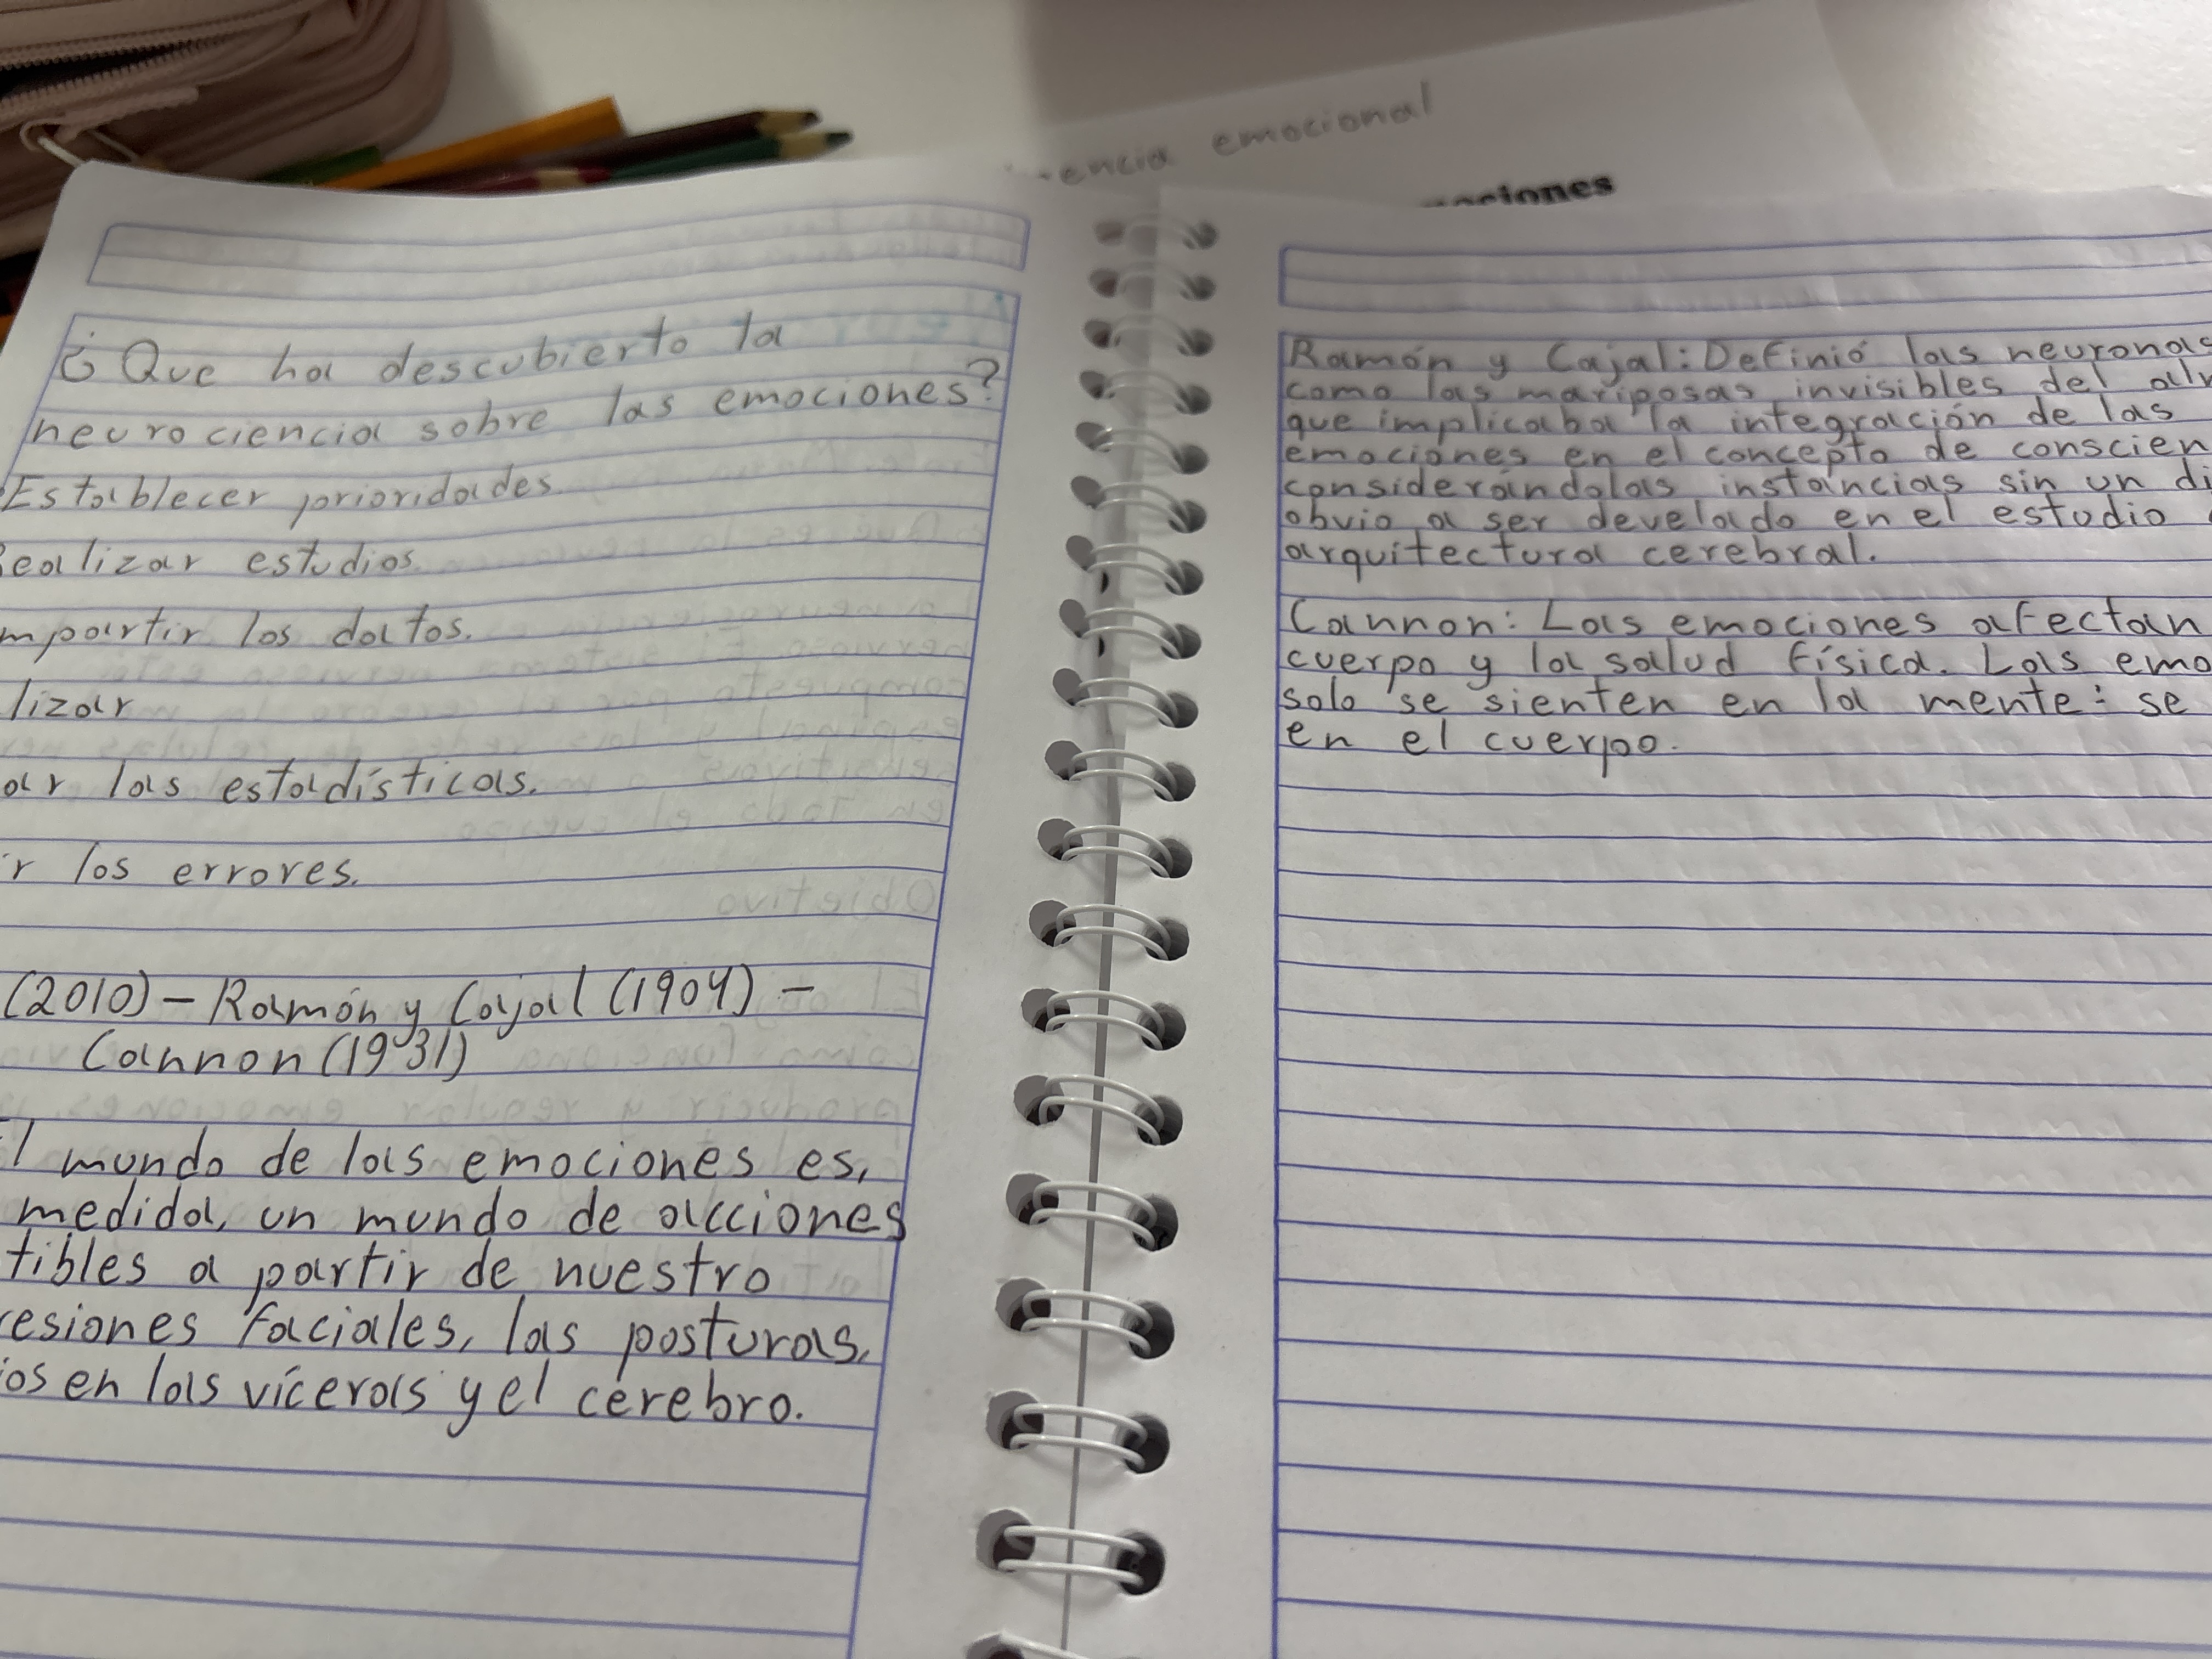 emocional
¿Que ha descubierto la
neurociencia sobre las emociones?
Establecer prioridades.
Realizar estudios.
mpartir los datos.
lizar
ar las estadísticas.
r los errores.
(2010) - Ramón y Cajal (1904) -
Cannon (1931)
l mundo de las emociones es,
medida, un mundo de acciones
tibles a partir de nuestro
resiones faciales, las posturas,
ios en las víceras y el cerebro.
Ramón y Cajal: Definió las neuronas
como las mariposas invisibles del
que implicaba la integración de las
emociones en el concepto de conscien
considerándolas instancias sin un di
obvio a ser develado en el estudio
arquitectura cerebral.
Cannon: Las emociones afectan
cuerpo y la salud física. Las emo
solo se sienten en la mente: se
en el cuerpo.